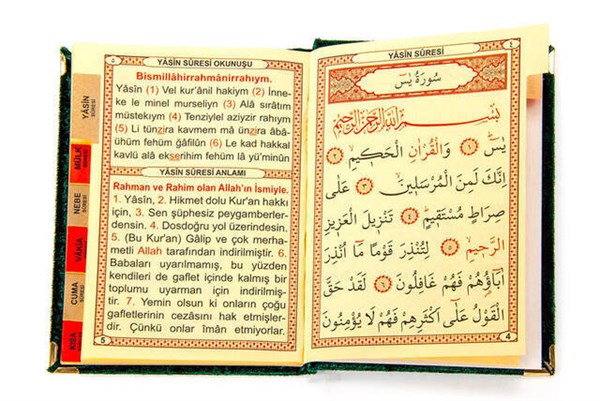 YÂSİN SÛRESİ OKUNUŞU
Bismillâhirrahmânirrahıym.
Yâsîn (1) Vel kur'ânil hakiym (2) İnne-
ke le minel murseliyn (3) Alâ sırâtım
müstekıym (4) Tenziylel aziyzir rahıym
(5) Li tünzira kavmem mâ ünzira âbâ-
ühüm fehüm ğafilûn (6) Le kad hakkal
kavlü alâ ekserihim fehüm lâ yü'minûn
YÂSİN SÛRESİ ANLAMI
Rahman ve Rahim olan Allah'ın İsmiyle.
1. Yâsîn, 2. Hikmet dolu Kur'an hakkı
için, 3. Sen şüphesiz peygamberler-
densin. 4. Dosdoğru yol üzerindesin.
5. (Bu Kur'an) Gâlip ve çok merha-
metli Allah tarafından indirilmiştir. 6.
Babaları uyarılmamış, bu yüzden
kendileri de gaflet içinde kalmış bir
toplumu uyarman için indirilmiş-
tir. 7. Yemin olsun ki onların çoğu
gafletlerinin cezasını hak etmişler-
dir. Çünkü onlar îmân etmiyorlar.
5
YÂSİN SÛRESİ
MÜLK SÛRESİ
NEBE SÛRESİ
VÂKIA
CUMA SÛRESİ
KISA
YÂSİN SÛRESİ
٤
سُورَةُ يٰسٓ
بِسْمِ اللّٰهِ الرَّحْمٰنِ الرَّحِيمِ
يٰسٓ ﴿١﴾ وَالْقُرْاٰنِ الْحَكِيمِ ﴿٢﴾
اِنَّكَ لَمِنَ الْمُرْسَلِينَ ﴿٣﴾ عَلٰى
صِرَاطٍ مُسْتَقِيمٍ ﴿٤﴾ تَنْزِيلَ الْعَزِيزِ
الرَّحِيمِ ﴿٥﴾ لِتُنْذِرَ قَوْمًا مَٓا اُنْذِرَ
اٰبَٓاؤُ۬هُمْ فَهُمْ غَافِلُونَ ﴿٦﴾ لَقَدْ حَقَّ
الْقَوْلُ عَلٰٓى اَكْثَرِهِمْ فَهُمْ لَا يُؤْمِنُونَ
4